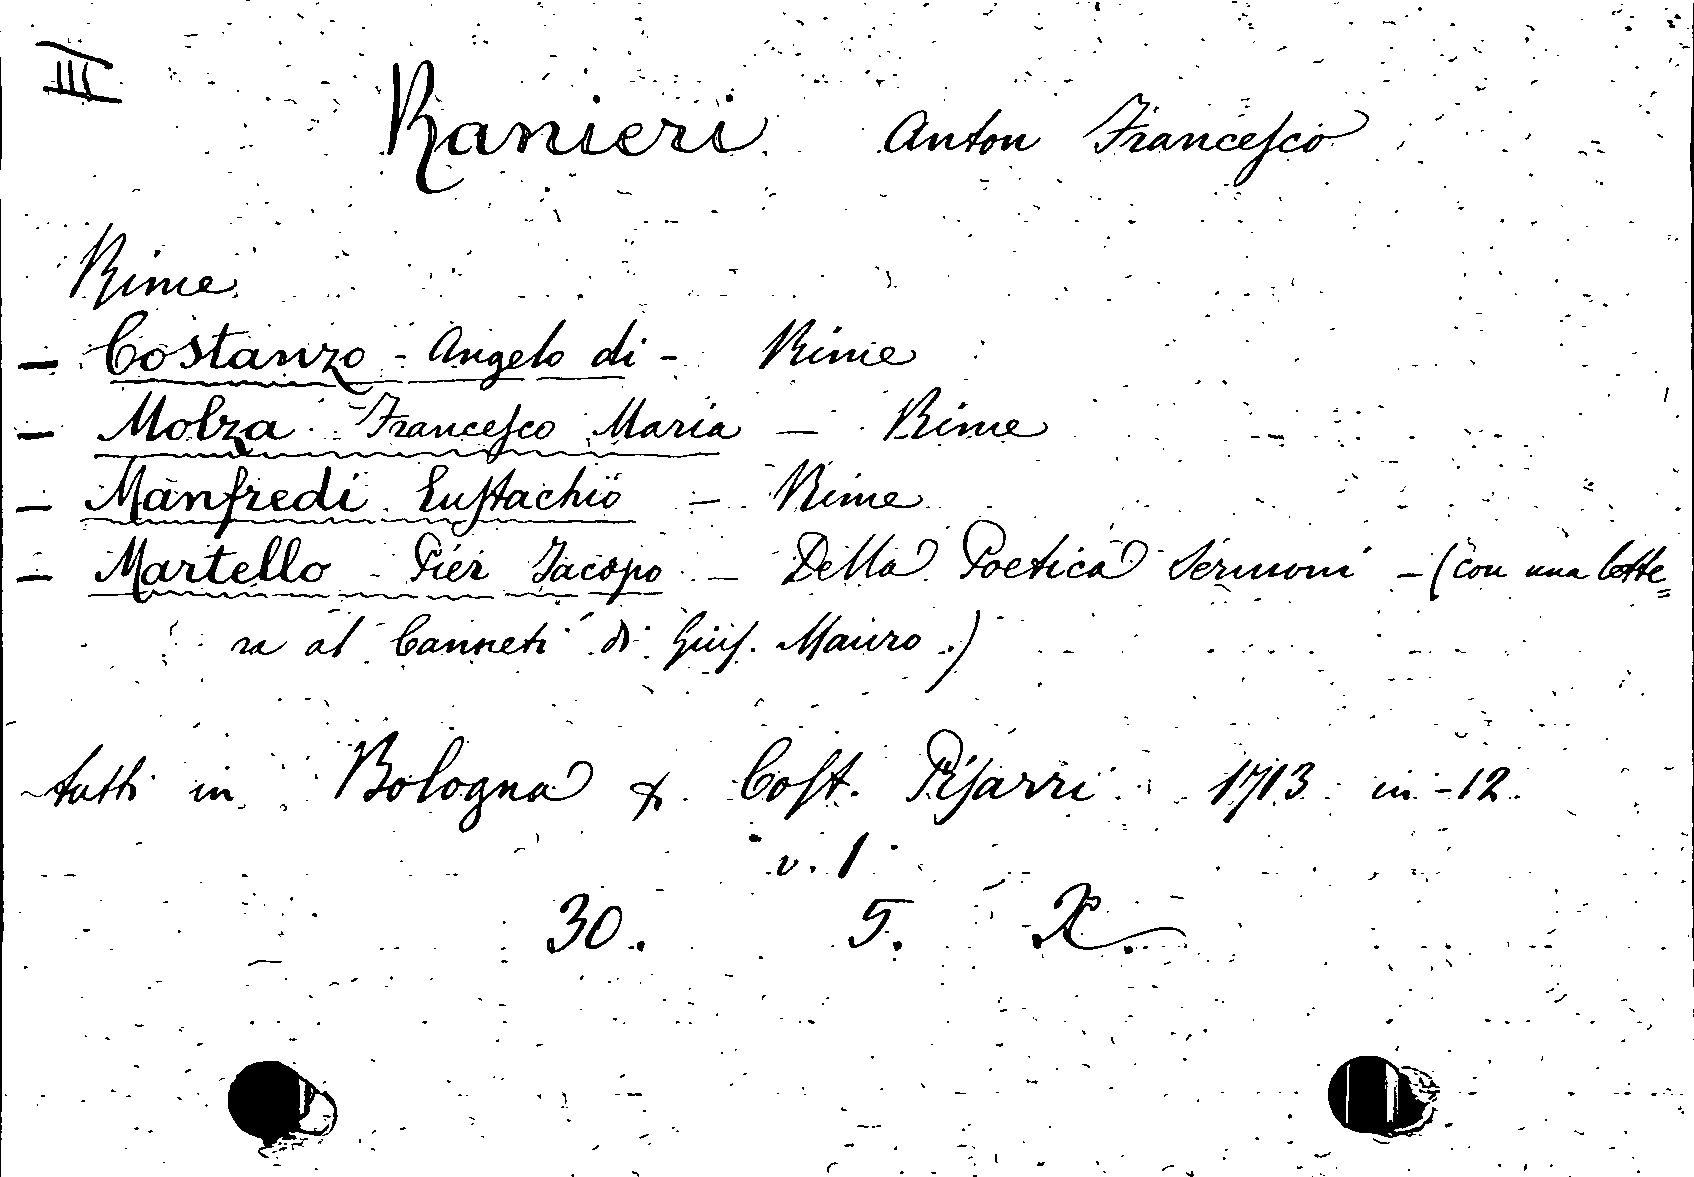 III
Ranieri Anton Francesco
Rime
- Costanzo - Angelo di - Rime
- Molza Francesco Maria - Rime
- Manfredi Eustachio - Rime
- Martello - Pier Jacopo - Della Poetica Sermoni - (con una lette=
ra al Canneti di Giuſ. Mauro.)
tutti in Bologna Coſt. Piſarri 1713 in-12.
v. 1
30. 5. X.